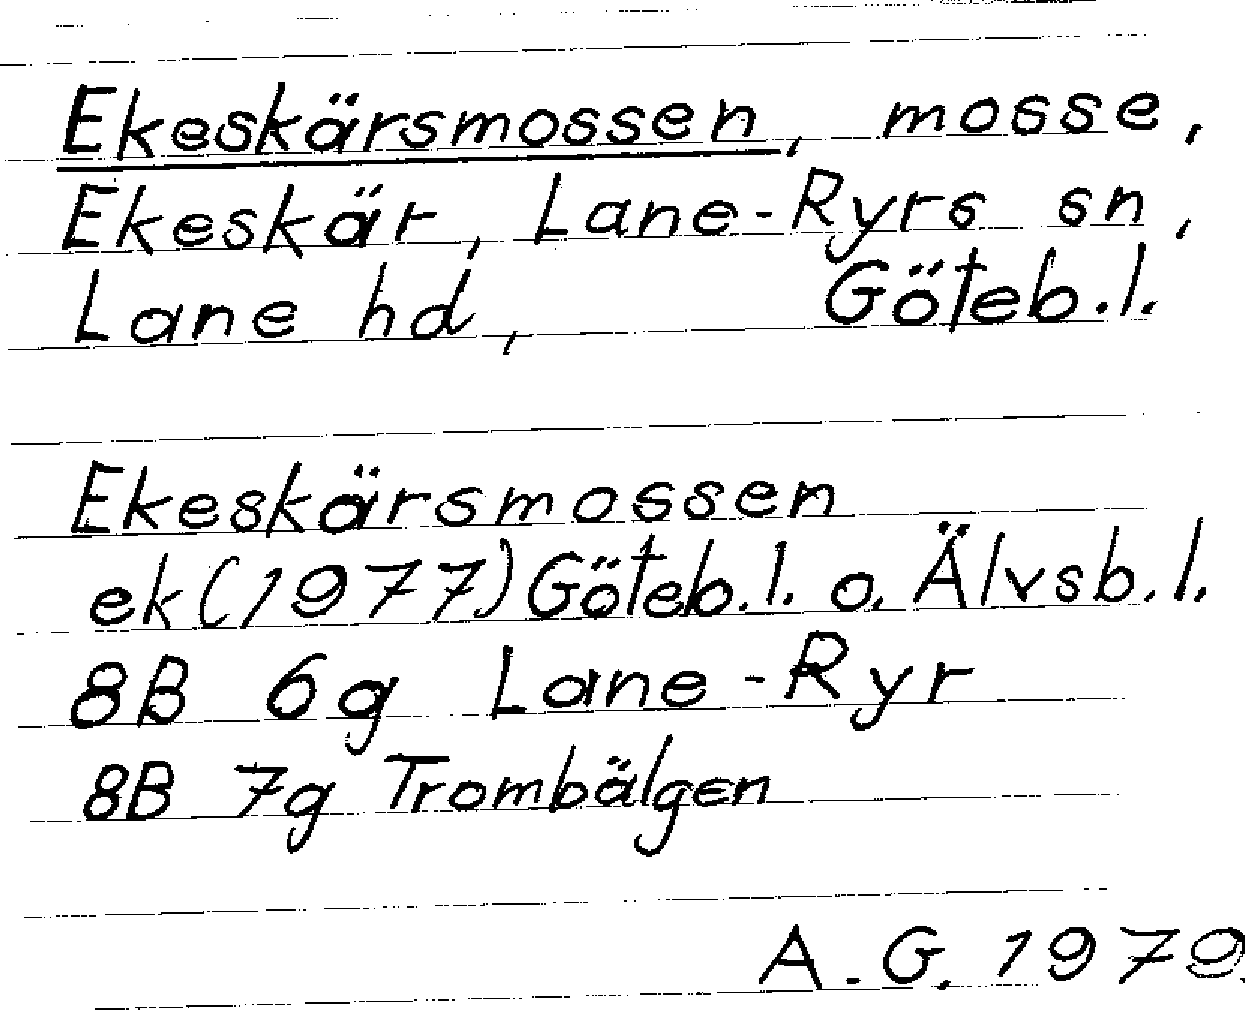 Ekeskärsmossen, mosse,
Ekeskär, Lane-Ryrs sn,
Lane hd, Göteb.l.
Ekeskärsmossen
ek(1977) Göteb.l. o. Älvsb.l.
8B 6g Lane-Ryr
8B 7g Trombälgen
A.G. 1979.